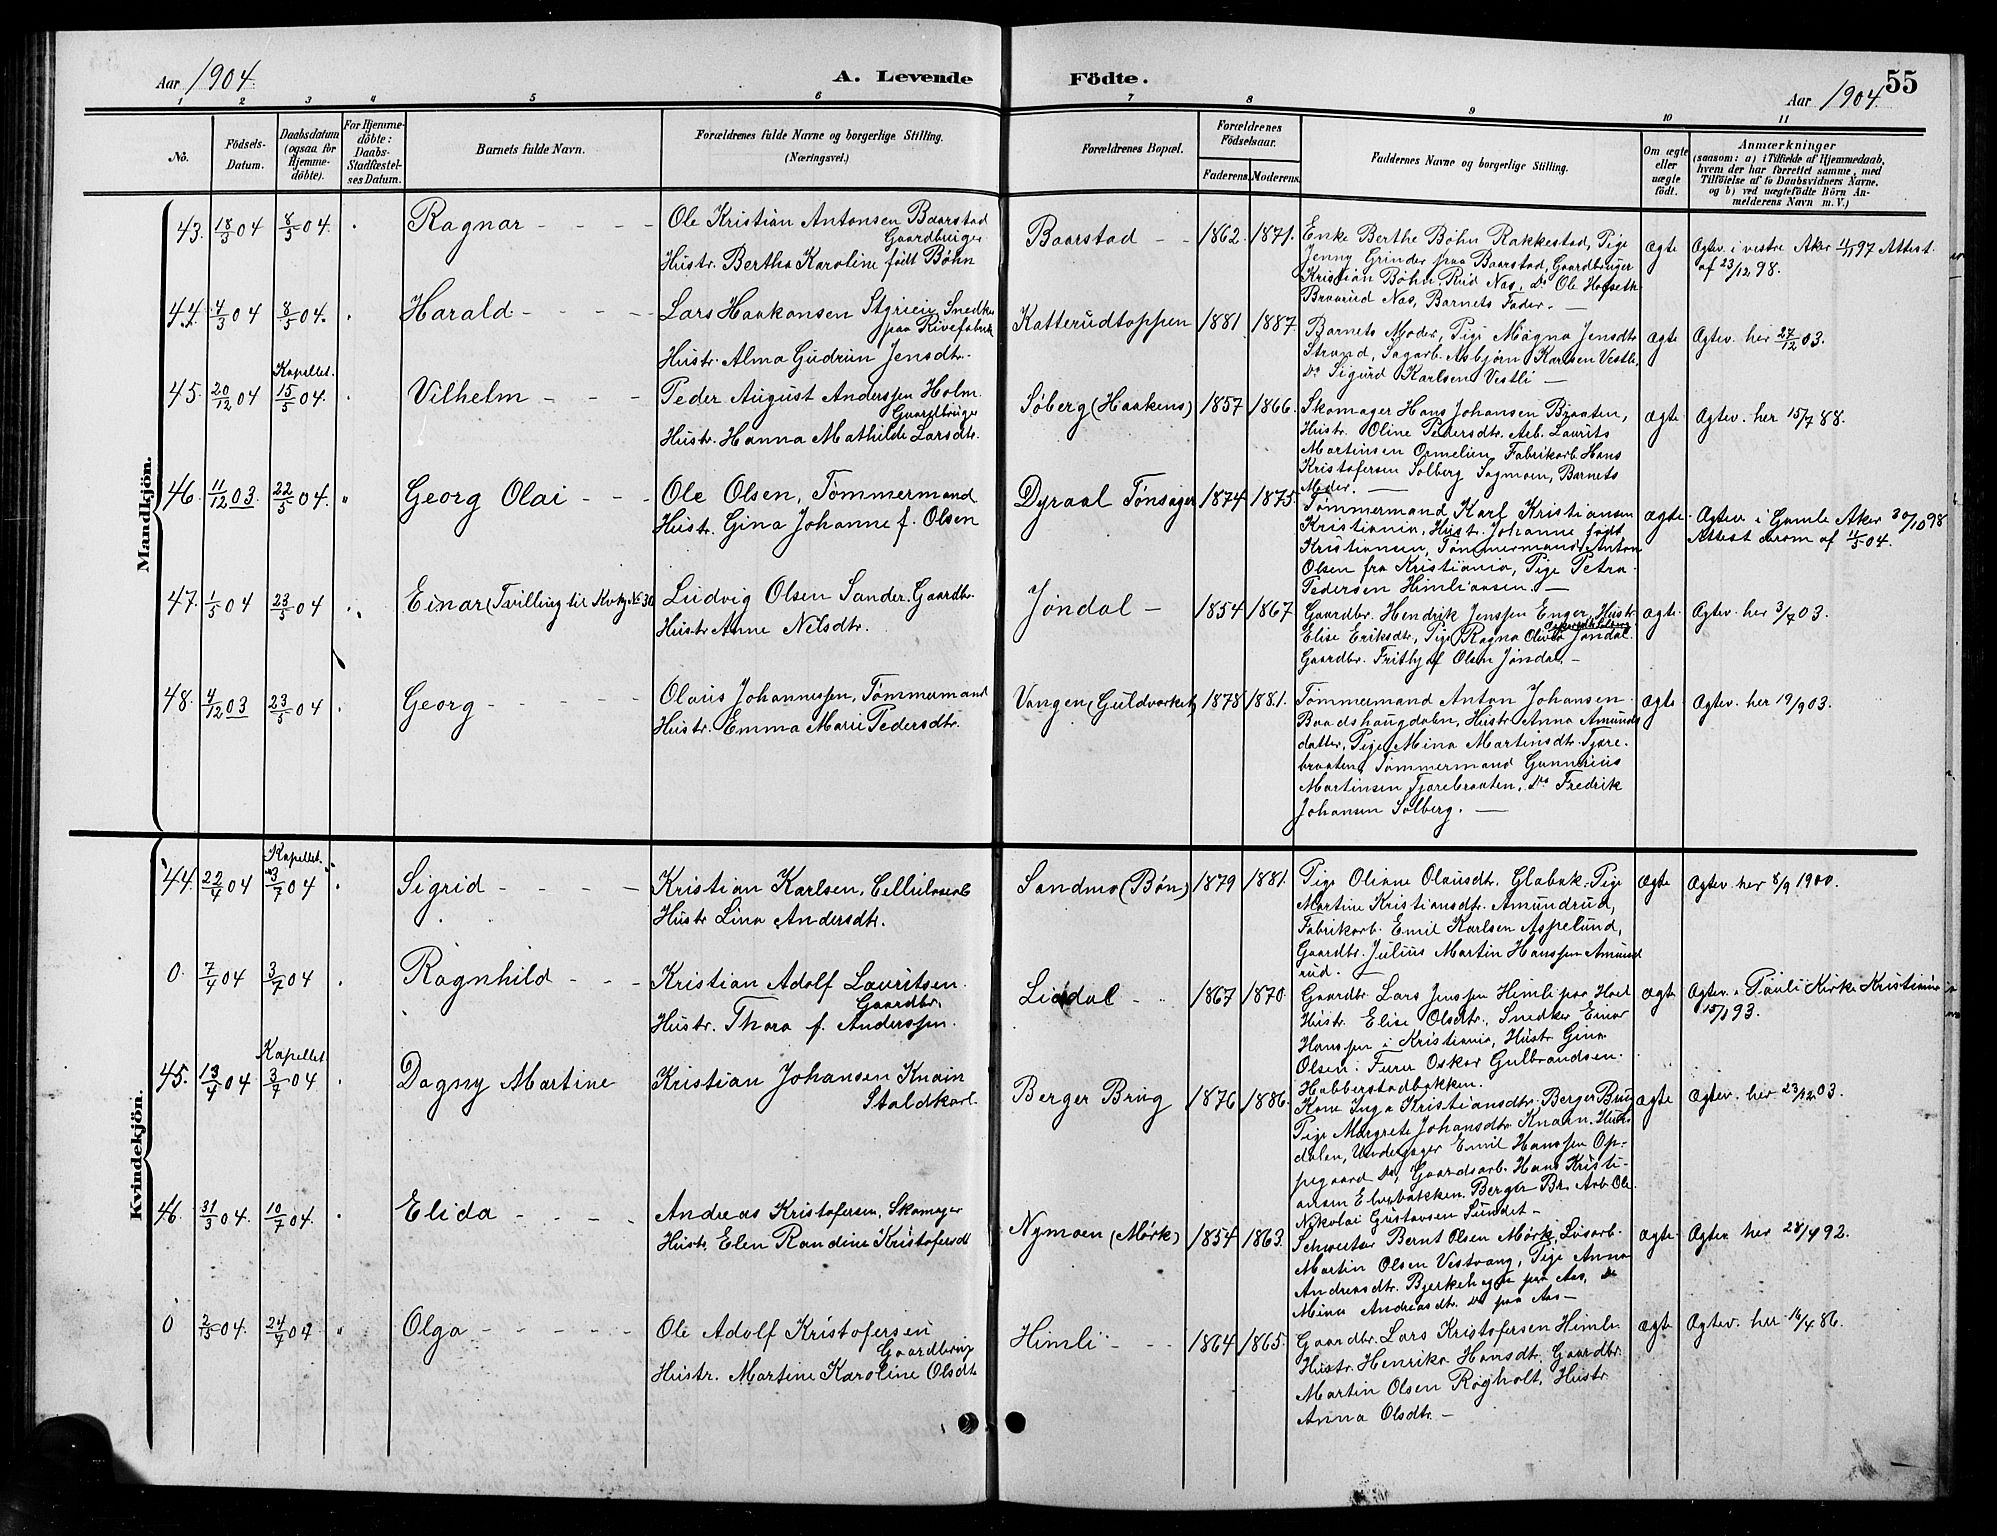 Aar 1904.
A. Levende Födte.
55
Aar 1904.
1 2 3 4 5 6 7 8 9 10 11
No.
Födsels-
Datum.
Daabsdatum
(ogsaa for
Hjemme-
döbte).
For Hjemme-
döbte:
Daabs-
Stadfæstel-
ses Datum.
Barnets fulde Navn.
Forældrenes fulde Navne og borgerlige Stilling.
(Næringsvei.)
Forældrenes Bopæl.
Forældrenes
Födselsaar.
Faderens. Moderens.
Faddernes Navne og borgerlige Stilling.
Om ægte
eller
uægte
födt.
Anmærkninger
(saasom: a) i Tilfælde af Hjemmedaab,
hvem der har forrettet samme, med
Tilföielse af to Daabsvidners Navne,
og b) ved uægtefödte Börn An-
melderens Navn m. V.)
Mandkjön.
43. 18/3 04 8/5 04. Ragnar
Ole Kristian Antonsen Baarstad
Gaardbruger
Hustr. Bertha Karoline født Bøhn
Baarstad 1862. 1871.
Enke Berthe Bøhn Rakkestad, Pige
Jenny Grinder paa Baarstad, Gaardbruger
Kristian Bøhn, Rud Nas, Do Ole Hofseth
Braarud Nas, Barnets Fader.
Ægte
Ægtev. i vestre Aker 11/11 97 Attest
af 23/12 98.
44. 4/3 04 8/5 04. Harald
Lars Haakonsen Snedker
paa Rivefabrik
Hustr. Alma Gudrun Jensdtr.
Katterudtoppen 1881 1887
Barnets Moder, Pige Magna Jensdtr.
Strand, Sagarb. Asbjørn Karlsen Vestli,
Do Sigurd Karlsen Vestli
Ægte
Ægtev. her 27/12 03.
45. 20/12 04 Kapellet. 15/5 04. Vilhelm
Peder August Anderssen Holm.
Gaardbruger
Hustr. Hanna Mathilde Larsdtr.
Søberg (Haakens) 1857 1866.
Skomager Hans Johansen Braaten,
Hustr. Oline Pedersdtr. Arb. Laurits
Martinsen Ormelien, Fabrikarb. Hans
Kristofersen Solberg Sagmoen, Barnets
Moder.
Ægte
Ægtev. her 15/7 88.
46. 11/12 03. 22/5 04. Georg Olai
Ole Olsen, Tömmermand
Hustr. Gina Johanne f. Olsen
Dyraal Tönsager 1874 1875.
Tømmermand Karl Kristiansen
Kristiania, Hustr. Johanne født
Kristiansen, Tømmermand Anton
Olsen fra Kristiania, Pige Petra
Pedersen Himliaasen.
Ægte.
Ægtev. i Gamle Aker 30/10 98
Attest derom af 11/5 04.
47. 1/5 04 23/5 04 Einar (Tvilling til Kvkj. No 36
Ludvig Olsen Sander. Gaardbr.
Hustr Anne Nilsdtr.
Jøndal 1854 1867
Gaardbr. Hendrik Jenssen Enger, Hustr
Elise Eriksdtr, Pige Ragna Olsdtr Jøndal
Gaardbr. Frithjof Olsen Jøndal.
Ægte.
Ægtev. her 3/7 03.
48. 4/12 03 23/5 04 Georg
Olaus Johannessen, Tømmermand
Hustr. Emma Marie Pedersdtr.
Vangen (Guldverket) 1878 1881.
Tømmermand Anton Johansen
Baadshaugdalen, Hustr Anna Amunds
datter, Pige Mina Martinsdtr. Tjære-
braaten, Tømmermand Gunnerius
Martinsen Tjærebraaten, Do Fredrik
Johansen Solberg.
Ægte
Ægtev. her 19/9 03.
Kvindekjön.
44. 22/4 04 Kapellet 3/7 04 Sigrid
Kristian Karlsen, Cellulosearb
Hustr Lina Andersdtr.
Sandmo (Bøn) 1879 1881.
Pige Oliane Olausdtr. Glabak. Pige
Martine Kristiansdtr. Amundrud,
Fabrikarb. Emil Karlsen Aspelund,
Gaardbr. Julius Martin Hanssen Amund
rud.
Ægte
Ægtev. her 8/9 1900.
0 7/4 04 3/7 04 Ragnhild
Kristian Adolf Lauritsen
Gaardbr.
Hustr. Thora f. Anderssen.
1867 1870
Gaardbr. Lars Jenssen Himli paa Hoel
Hustr. Elise Olsdtr., Snedker Einar
Hanssen i Kristiania, Hustr Gina
Olsen. Furer Oskar Gulbrandsen.
Habberstadbakken.
Ægte
Ægtev. i Pauli Kirke Kristiania
15/1 93.
45. 13/4 04 Kapellet 3/7 04 Dagny Martine
Kristian Johansen Knain
Staldkarl.
Berger Brug 1876 1886.
Kone Inga Kristiansdtr. Berger Brug
Pige Margrete Johansdtr. Knain. Hur-
dalen, Emil Hanssen Op-
pegaard Do, Gaardsarb. Hans Kristi-
ansen Elvebakken. Berger Br. Arb. Ole
Nikolai Gustavsen Sundet
Ægte
Ægtev. her 23/12 03.
46. 31/3 04. 10/7 04. Elida
Andreas Kristofersen, Skomager
Hustr. Elen Randine Kristofersdt
Nymoen (Mörk) 1854 1863.
Schweitser Bernt Olsen Mörk, Løsarb.
Martin Olsen Vestvang, Pige Anna
Andreasdtr. Bjerkehagen paa Aas, Do
Mina Andreasdtr. Do paa Aas
Ægte.
Ægtev. her 28/4 92.
0 2/5 04. 24/7 04 Olga
Ole Adolf Kristofersen
Gaardbrug
Hustr. Martine Karoline Olsdt.
Himli 1864 1865.
Gaardbr. Lars Kristofersen Himle
Hustr. Henrika Hansdtr. Gaardbr.
Martin Olsen Røgholt, Hustr.
Anna Olsdtr.
Ægte
Ægtev. her 16/4 86.